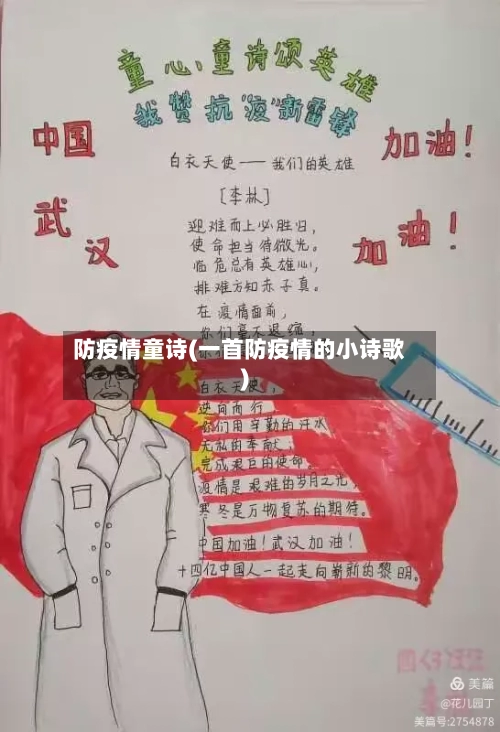 童心童诗颂英雄
我赞抗"疫"新雷锋
中国
加油!
武汉
加油!
白衣天使——我们的英雄
[李林]
迎难而上必胜归,
使命担当待微光。
临危总有英雄心,
排难方知赤子真。
在疫情面前,
你们毫不退缩,
防疫情童诗(一首防疫情的小诗歌
)
白衣天使,
逆向而行
你们用辛勤的汗水
无私的奉献,
完成艰巨的使命
疫情是艰难的岁月之光
寒冬是万物复苏的期待。
中国加油!武汉加油!
十四亿中国人一起走向崭新的黎明。
美篇
@花儿园丁
美篇号:2754878